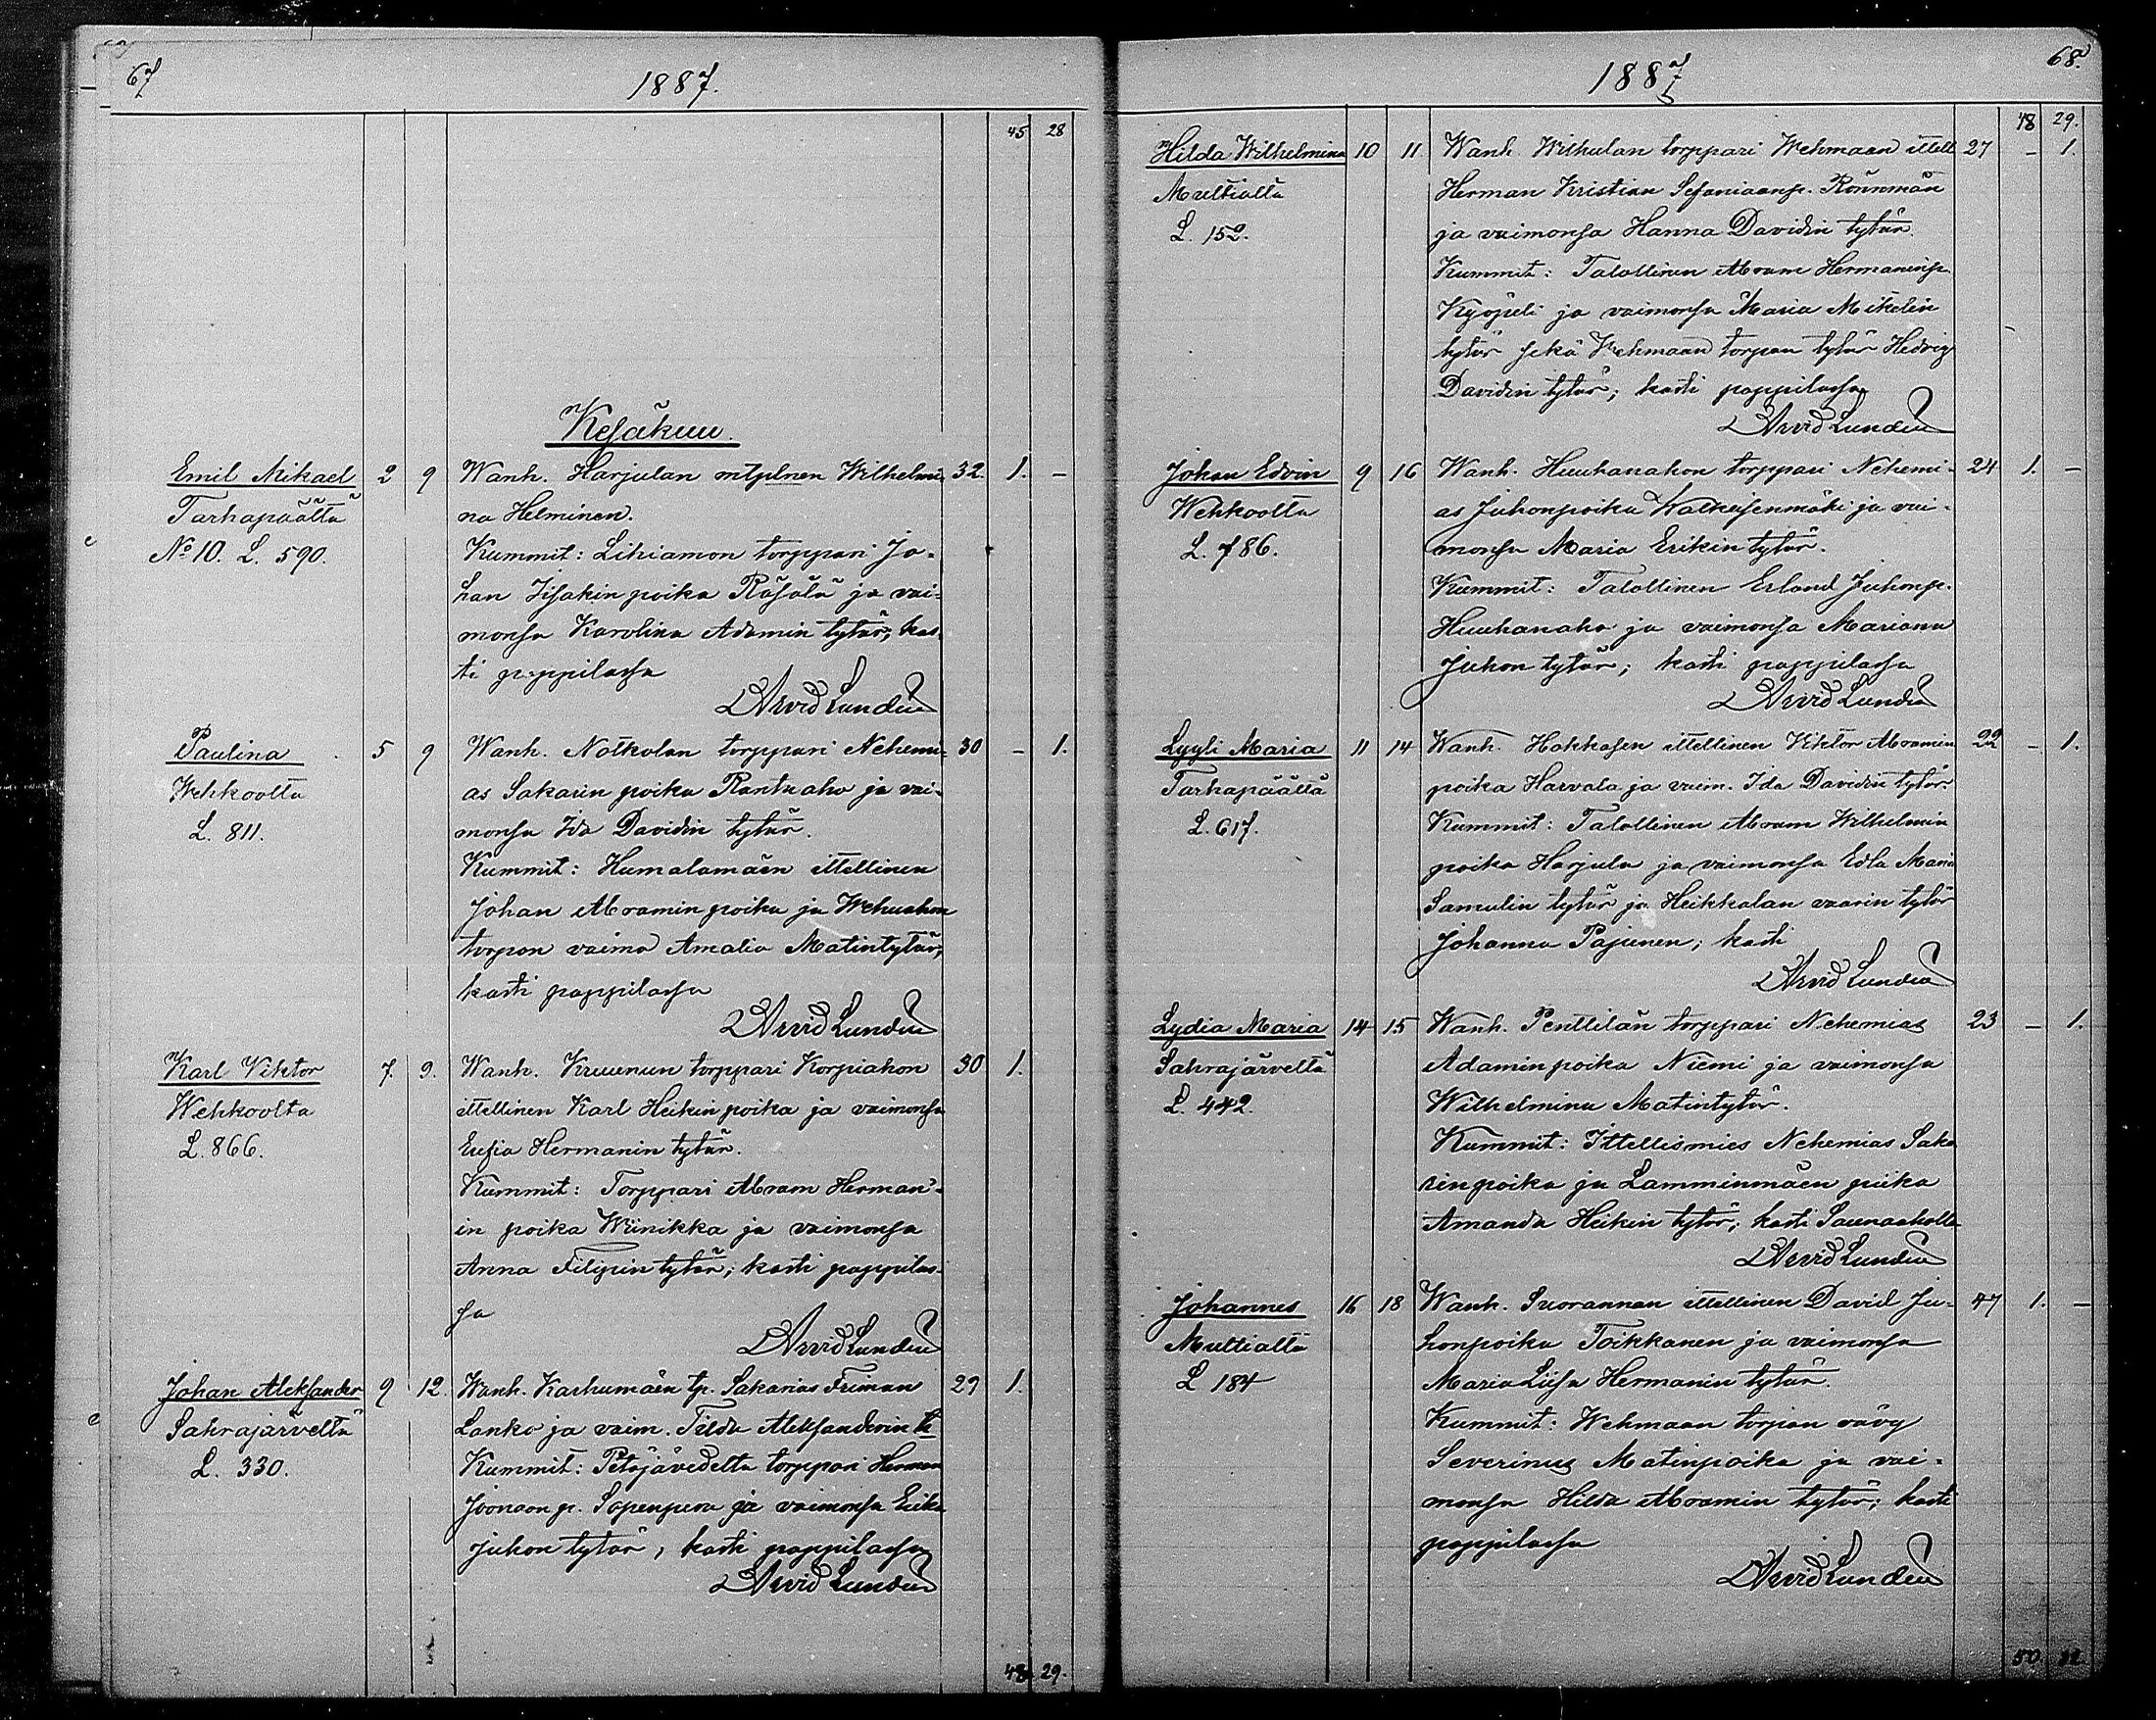 67
1887.
45 28
Kesäkuu.
Emil Mikael 2 9 Wanh. Harjulan mtpln̄en Wilhelmi- 32. 1. -
Tarhapäältä na Helminen.
No 10. L. 590. Kummit: Lihiamon torppari Jo-
han Iisakin poika Räsälä ja vai-
monsa Karolina Adamin tytär; kas-
ti pappilassa
Arvid Lundén
Paulina 5 9 Wanh. Notkolan torppari Nehemi- 30 - 1.
Wehkoolta as Sakarin poika Rantuaho ja vai-
L. 811. monsa Ida Davidin tytär.
Kummit: Humalamäen ittellinen
Johan Abramin poika ja Wehuahon
torpan vaimo Amalia Matintytär;
kasti pappilassa
Arvid Lundén
Karl Viktor 7. 9. Wanh. Kruunun torppari Korpiahon 30 1.
Wehkoolta ittellinen Karl Heikin poika ja vaimonsa
L. 866. Eufia Hermanin tytär.
Kummit: Torppari Abram Herman-
in poika Wiinikka ja vaimonsa
Anna Filipin tytär; kasti pappilas-
sa
Arvid Lundén
Johan Aleksander 9 12. Wanh. Karhumäen tp. Sakarias Friman 29 1.
Sahrajärveltä Lanko ja vaim. Tilda Aleksanderin tr
L. 330. Kummit: Petäjävedeltä torppari Herman
Joonaan p. Sopenpera ja vaimonsa Eeika
Juhon tytär; kasti pappilassa
Arvid Lundén
48 29.
68.
1887
48 29.
Hilda Wilhelmina 10 11 Wanh. Wilhulan torppari Wehmaan ittell 27 - 1.
Multialta Herman Kristian Sefaniaanp. Rönnmän
L. 152. ja vaimonsa Hanna Davidin tytär.
Kummit: Talollinen Abram Hermaninp.
Kyöpeli ja vaimonsa Maria Mikelin
tytär sekä Wehmaan torpan tytär Hedvig
Davidin tytär; kasti pappilassa
Arvid Lundén
Johan Edvin 9 16 Wanh. Huuhanahon torppari Nehemi- 24 1. -
Wehkoolta as Juhonpoika Walkeisenmäki ja vai-
L. 786. monsa Maria Erikin tytär.
Kummit: Talollinen Erland Juhonp.
Huuhanaho ja vaimonsa Mariana
Juhon tytär; kasti pappilassa
Arvid Lundén
Lyyli Maria 11 14 Wanh. Hokkasen ittellinen Viktor Abramin 22 - 1.
Tarhapäältä poika Harvala ja vaim. Ida Davidin tytär.
L. 617. Kummit: Talollinen Abram Wilhelmin
poika Harjula ja vaimonsa Edla Maria
Samulin tytär ja Heikkalan vaarin tytär
Johanna Pajunen; kasti
Arvid Lundén
Lydia Maria 14 15 Wanh. Penttilän torppari Nehemias 23 - 1.
Sahrajärveltä Adamin poika Niemi ja vaimonsa
L. 442. Wilhelmina Matintytär.
Kummit: Ittellismies Nehemias Saka-
rinpoika ja Lamminmäen piika
Amanda Heikin tytär; kasti Saunaaholla
Arvid Lundén
Johannes 16 18 Wanh. Suorannan ittellinen David Ju- 47 1. -
Multialta honpoika Toikkanen ja vaimonsa
L 184 Maria Liisa Hermanin tytär.
Kummit: Wehmaan torpan vävy
Severinus Matinpoika ja vai-
monsa Hilda Abramin tytär; kasti
pappilassa
Arvid Lundén
50. 32